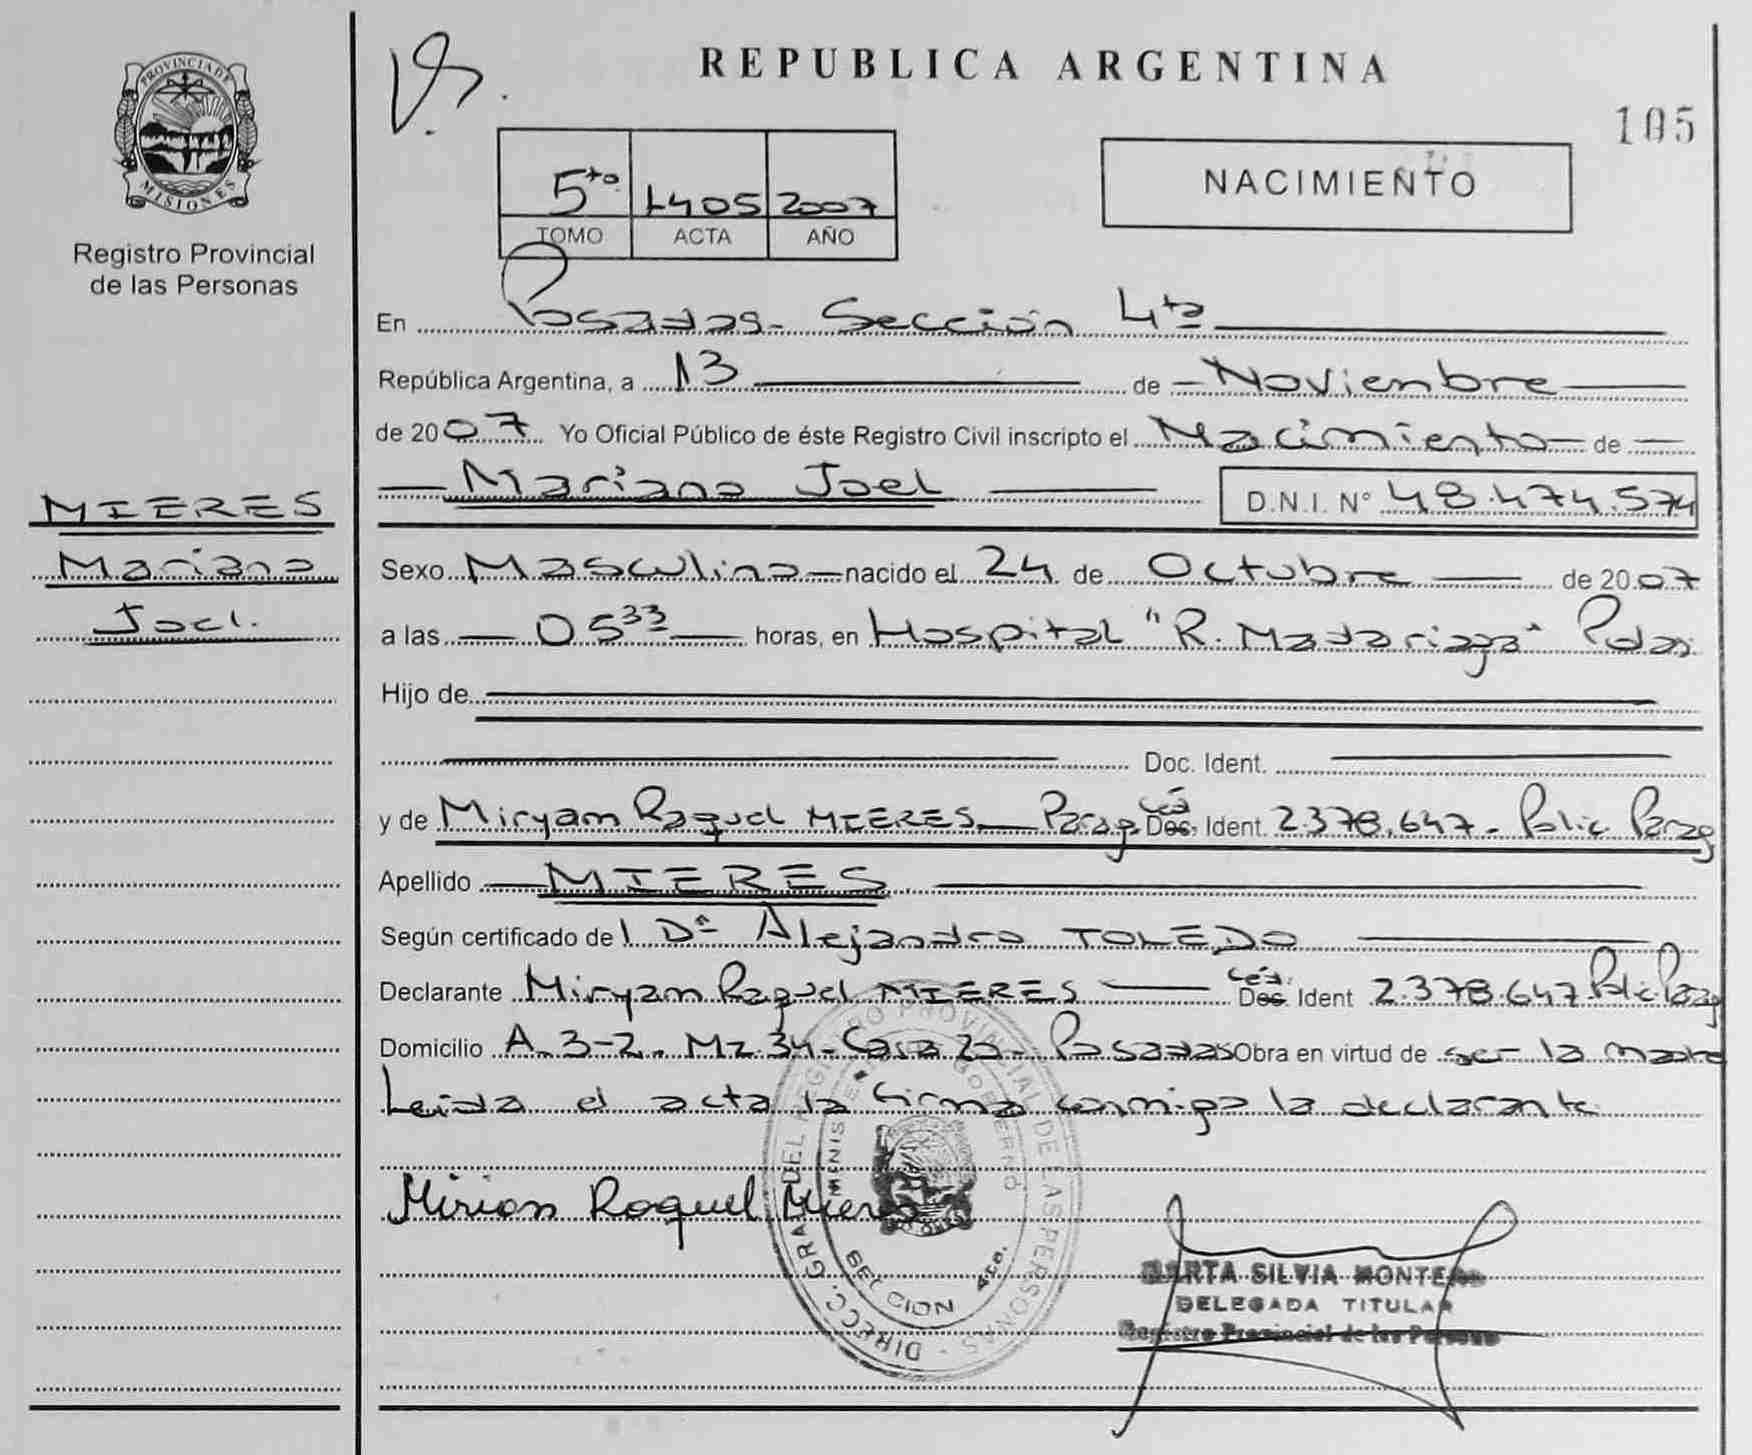 PROVINCIA DE
MISIONES
Registro Provincial
de las Personas
MIERES
Mariano
Joel.
REPUBLICA ARGENTINA
105
5to
1405
2007
TOMO
ACTA
AÑO
NACIMIENTO
En Posadas- Sección 4ta
República Argentina, a 13 de Noviembre
de 2007 Yo Oficial Público de éste Registro Civil inscripto el Nacimiento de
Mariano Joel D.N.I. N° 48.474.574
Sexo Masculino nacido el 24 de Octubre de 2007
a las 05 33 horas, en Hospital "R. Madariaga" Pdas
Hijo de
Doc. Ident.
y de Miryam Raquel MIERES Parag Céd Doc. Ident. 2.378.647- Polic Parag
Apellido MIERES
Según certificado del Dr Alejandro TOLEDO
Declarante Miryam Raquel MIERES Céd. Doc. Ident 2.378.647 Polic Parag
Domicilio A. 3-2. Mz.34-Casa 23- Posadas Obra en virtud de ser la madre
Leida el acta la firma conmigo la declarante
Mirian Raquel Mieres
DIRECC. GRAL DEL REGISTRO PROVINCIAL DE LAS PERSONAS
GOBIERNO
MARTA SILVIA MONTERO
DELEGADA TITULAR
Registro Provincial de las Personas